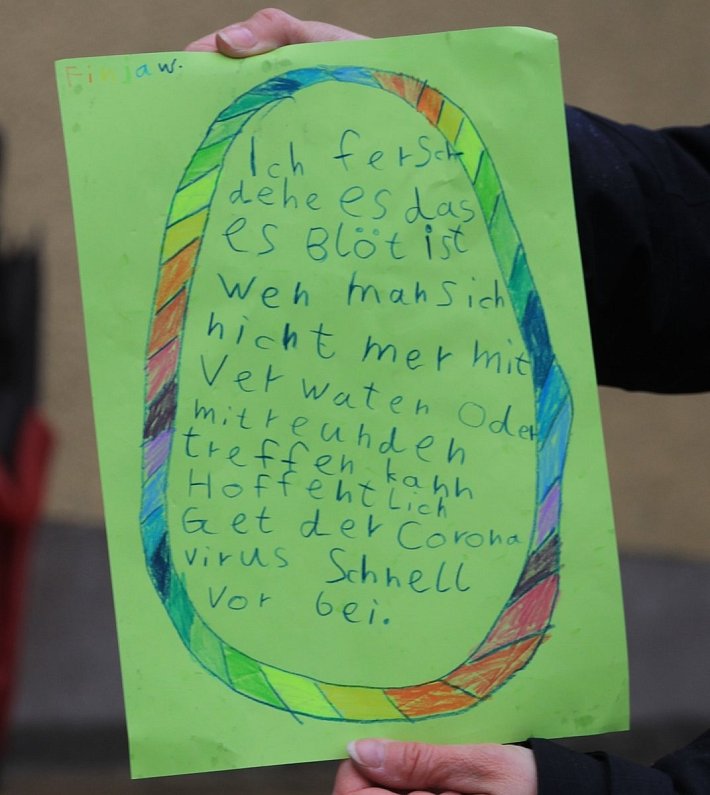 Finja w.
Ich fersch
dehe es das
es Blöt ist
Wen man sich
nicht mer mit
Ver waten oder
mitreunden
treffen kann
Hoffentlich
Get der Corona
virus Schnell
Vor bei.